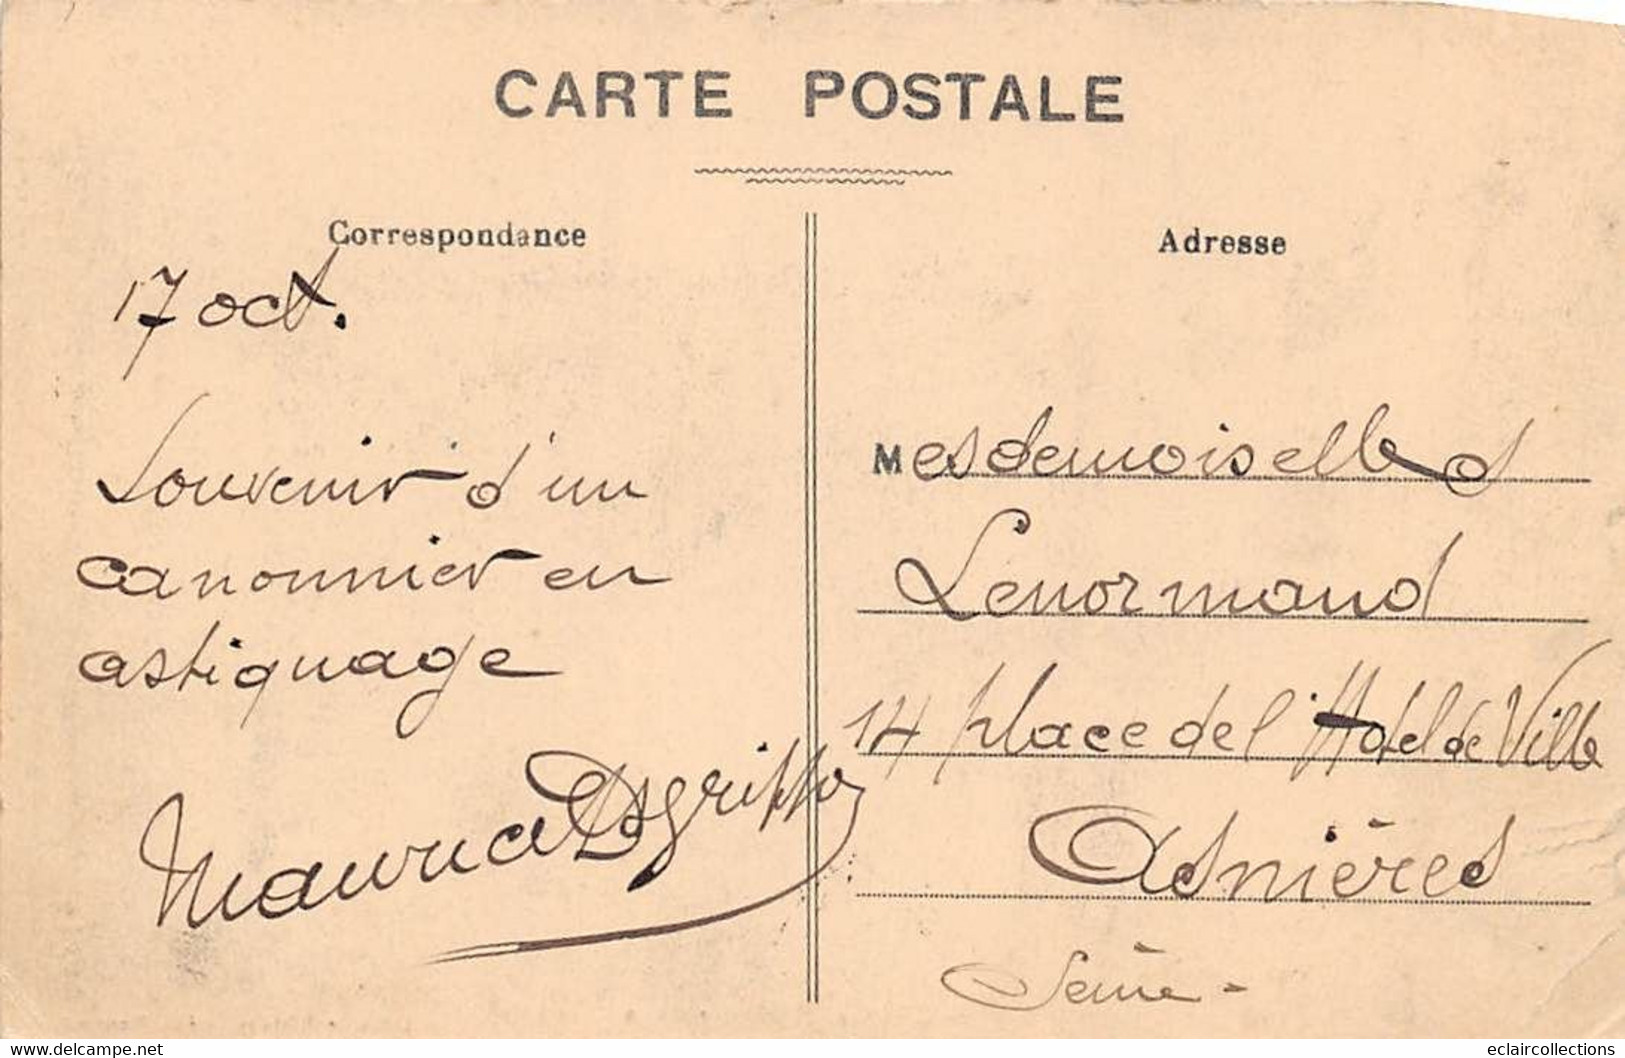 CARTE POSTALE
Correspondance
17 oct.
Souvenir d'un
canonnier en
astiquage
Maurice
Adresse
Mesdemoiselles
Lenormand
14 place de l'Hotel de Ville
Asnières
Seine -
www.delcampe.net
eclaircollections